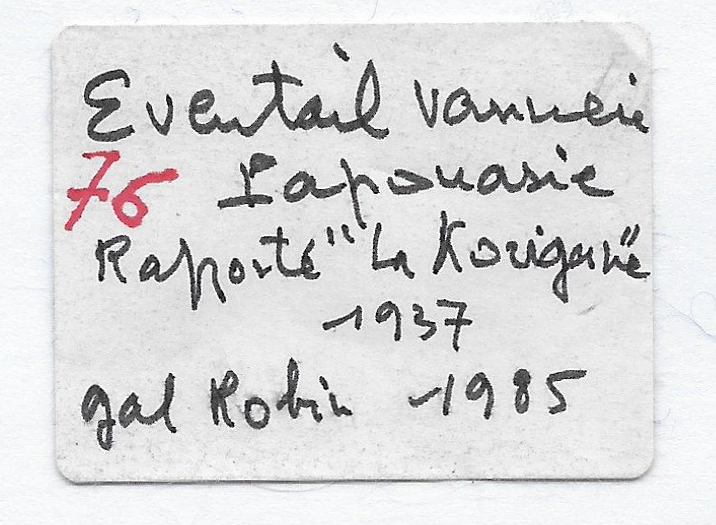 Eventail vannerie
76 Papouasie
Raporté "La Korigane"
1937
gal Robin 1985